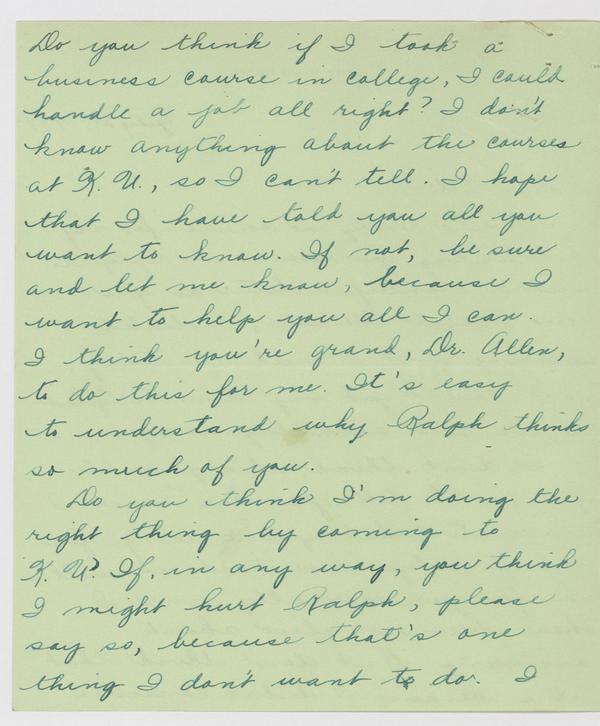 Do you think if I took a
business course in college, I could
handle a job all right? I don't
know anything about the courses
at K. U., so I can't tell. I hope
that I have told you all you
want to know. If not, be sure
and let me know, because I
want to help you all I can.
I think you're grand, Dr. Allen,
to do this for me. It's easy
to understand why Ralph thinks
so much of you.
Do you think I'm doing the
right thing by coming to
K. U.? If, in any way, you think
I might hurt Ralph, please
say so, because that's one
thing I don't want to do. I